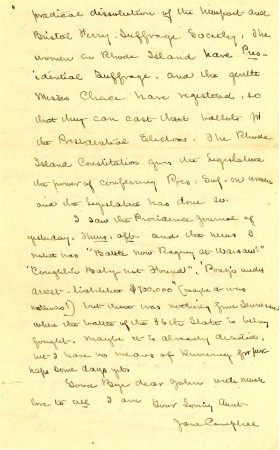 practical dissolution of the Newport and
Bristol Ferry Suffrage Society. The
women in Rhode Island have Pres-
idential Suffrage, and the gentle
Misses Chace have registered, so
that they can cast their ballots for
the Presidential Electors. The Rhode
Island Constitution gives the Legislature
the power of conferring Pres. Suf. on women
and the Legislature has done so.
I saw the Providence Journal of
yesterday, Thurs. aft. and the news
was "Battle Now Raging at Warsaw"
"Coughlin Baby not Found".
$400.000 (maybe it was
) but there was nothing from Tennessee
where the battle of the 36th State is being
fought. Maybe it is already decided,
but I have no means of knowing for per-
haps some days yet.
Good Bye dear John with much
love to all I am Your loving Aunt
Jane Campbell